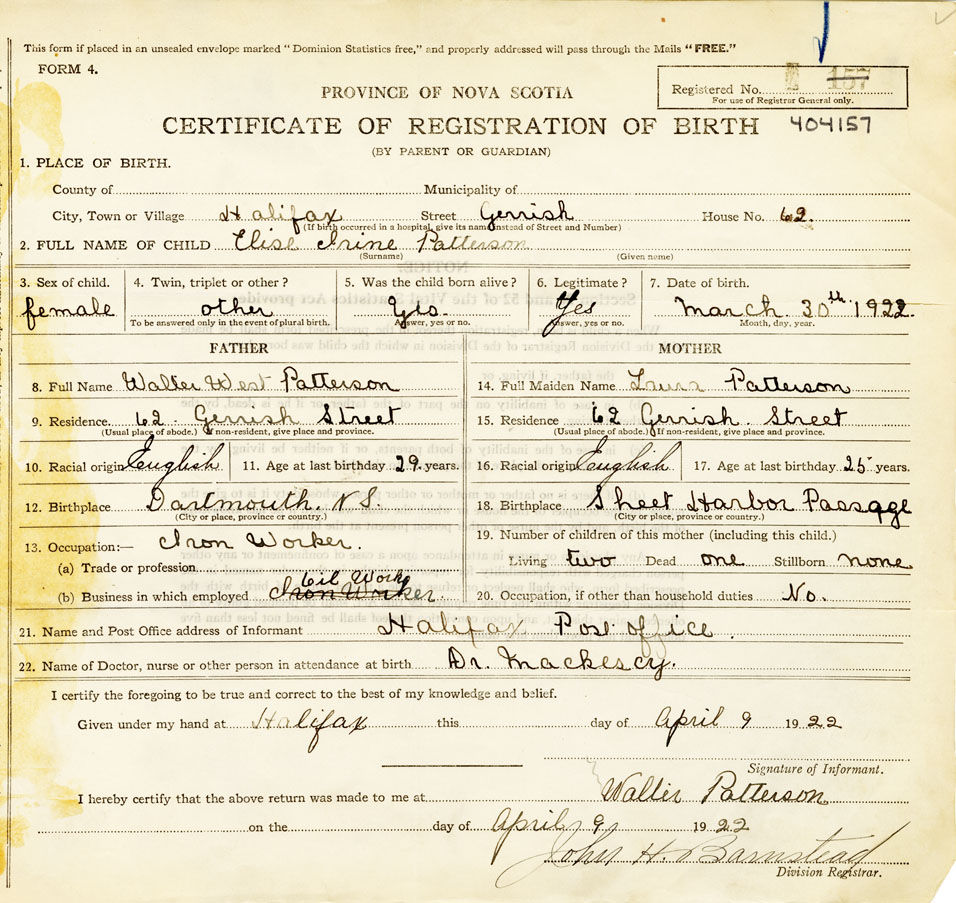 This form if placed in an unsealed envelope marked "Dominion Statistics free," and properly addressed will pass through the Mails "FREE."
FORM 4.
Registered No. 157
For use of Registrar General only.
PROVINCE OF NOVA SCOTIA
CERTIFICATE OF REGISTRATION OF BIRTH 404157
(BY PARENT OR GUARDIAN)
1. PLACE OF BIRTH.
County of Municipality of
City, Town or Village Halifax Street Gerrish House No. 62.
(If birth occurred in a hospital, give its name instead of Street and Number)
2. FULL NAME OF CHILD Elise Irine Patterson
(Surname) (Given name)
3. Sex of child. 4. Twin, triplet or other? 5. Was the child born alive? 6. Legitimate? 7. Date of birth.
female other Yes. Yes March 30th 1922.
To be answered only in the event of plural birth. Answer, yes or no. Answer, yes or no. Month, day, year.
FATHER MOTHER
8. Full Name Walter West Patterson 14. Full Maiden Name Laura Patterson
9. Residence. 62. Gerrish Street 15. Residence 62 Gerrish Street
(Usual place of abode.) If non-resident, give place and province. (Usual place of abode.) If non-resident, give place and province.
10. Racial origin English 11. Age at last birthday 29 years. 16. Racial origin English 17. Age at last birthday 25 years.
12. Birthplace Dartmouth. N S. 18. Birthplace Sheet Harbor Passage
(City or place, province or country.) (City or place, province or country.)
13. Occupation:— Iron Worker. 19. Number of children of this mother (including this child.)
(a) Trade or profession Living two Dead one Stillborn none
Oil Works
(b) Business in which employed Iron Worker 20. Occupation, if other than household duties No.
21. Name and Post Office address of Informant Halifax Post office.
22. Name of Doctor, nurse or other person in attendance at birth Dr. Mackescy.
I certify the foregoing to be true and correct to the best of my knowledge and belief.
Given under my hand at Halifax this day of April 9 1922
Signature of Informant.
I hereby certify that the above return was made to me at Walter Patterson
on the day of April 9 1922
John H. Barnstead
Division Registrar.